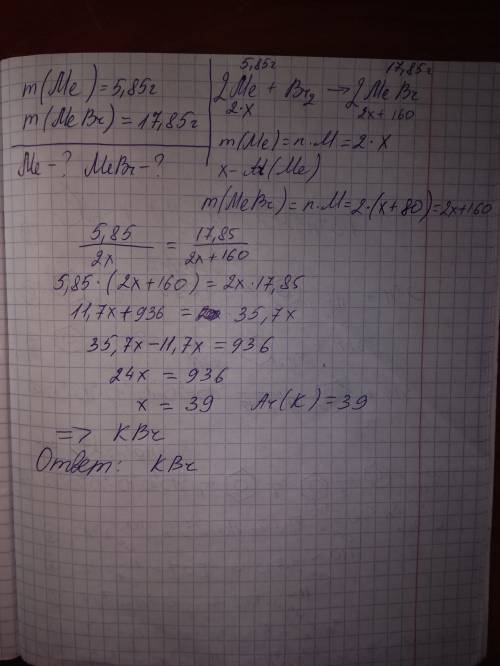 m(Me)=5,85г
m(MeBr)=17,85г
Me-? MeBr-?
5,85г 17,85г
2Me + Br₂ → 2MeBr
2·x 2x+160
m(Me)=n·M=2·x
x- (Me)
m(MeBr)=n·M=2·(x+80)=2x+160
5,85/2x = 17,85/2x+160
5,85·(2x+160)=2x·17,85
11,7x+936 = 35,7x
35,7x-11,7x=936
24x = 936
x = 39 Ar(K)=39
=> KBr
Ответ: KBr